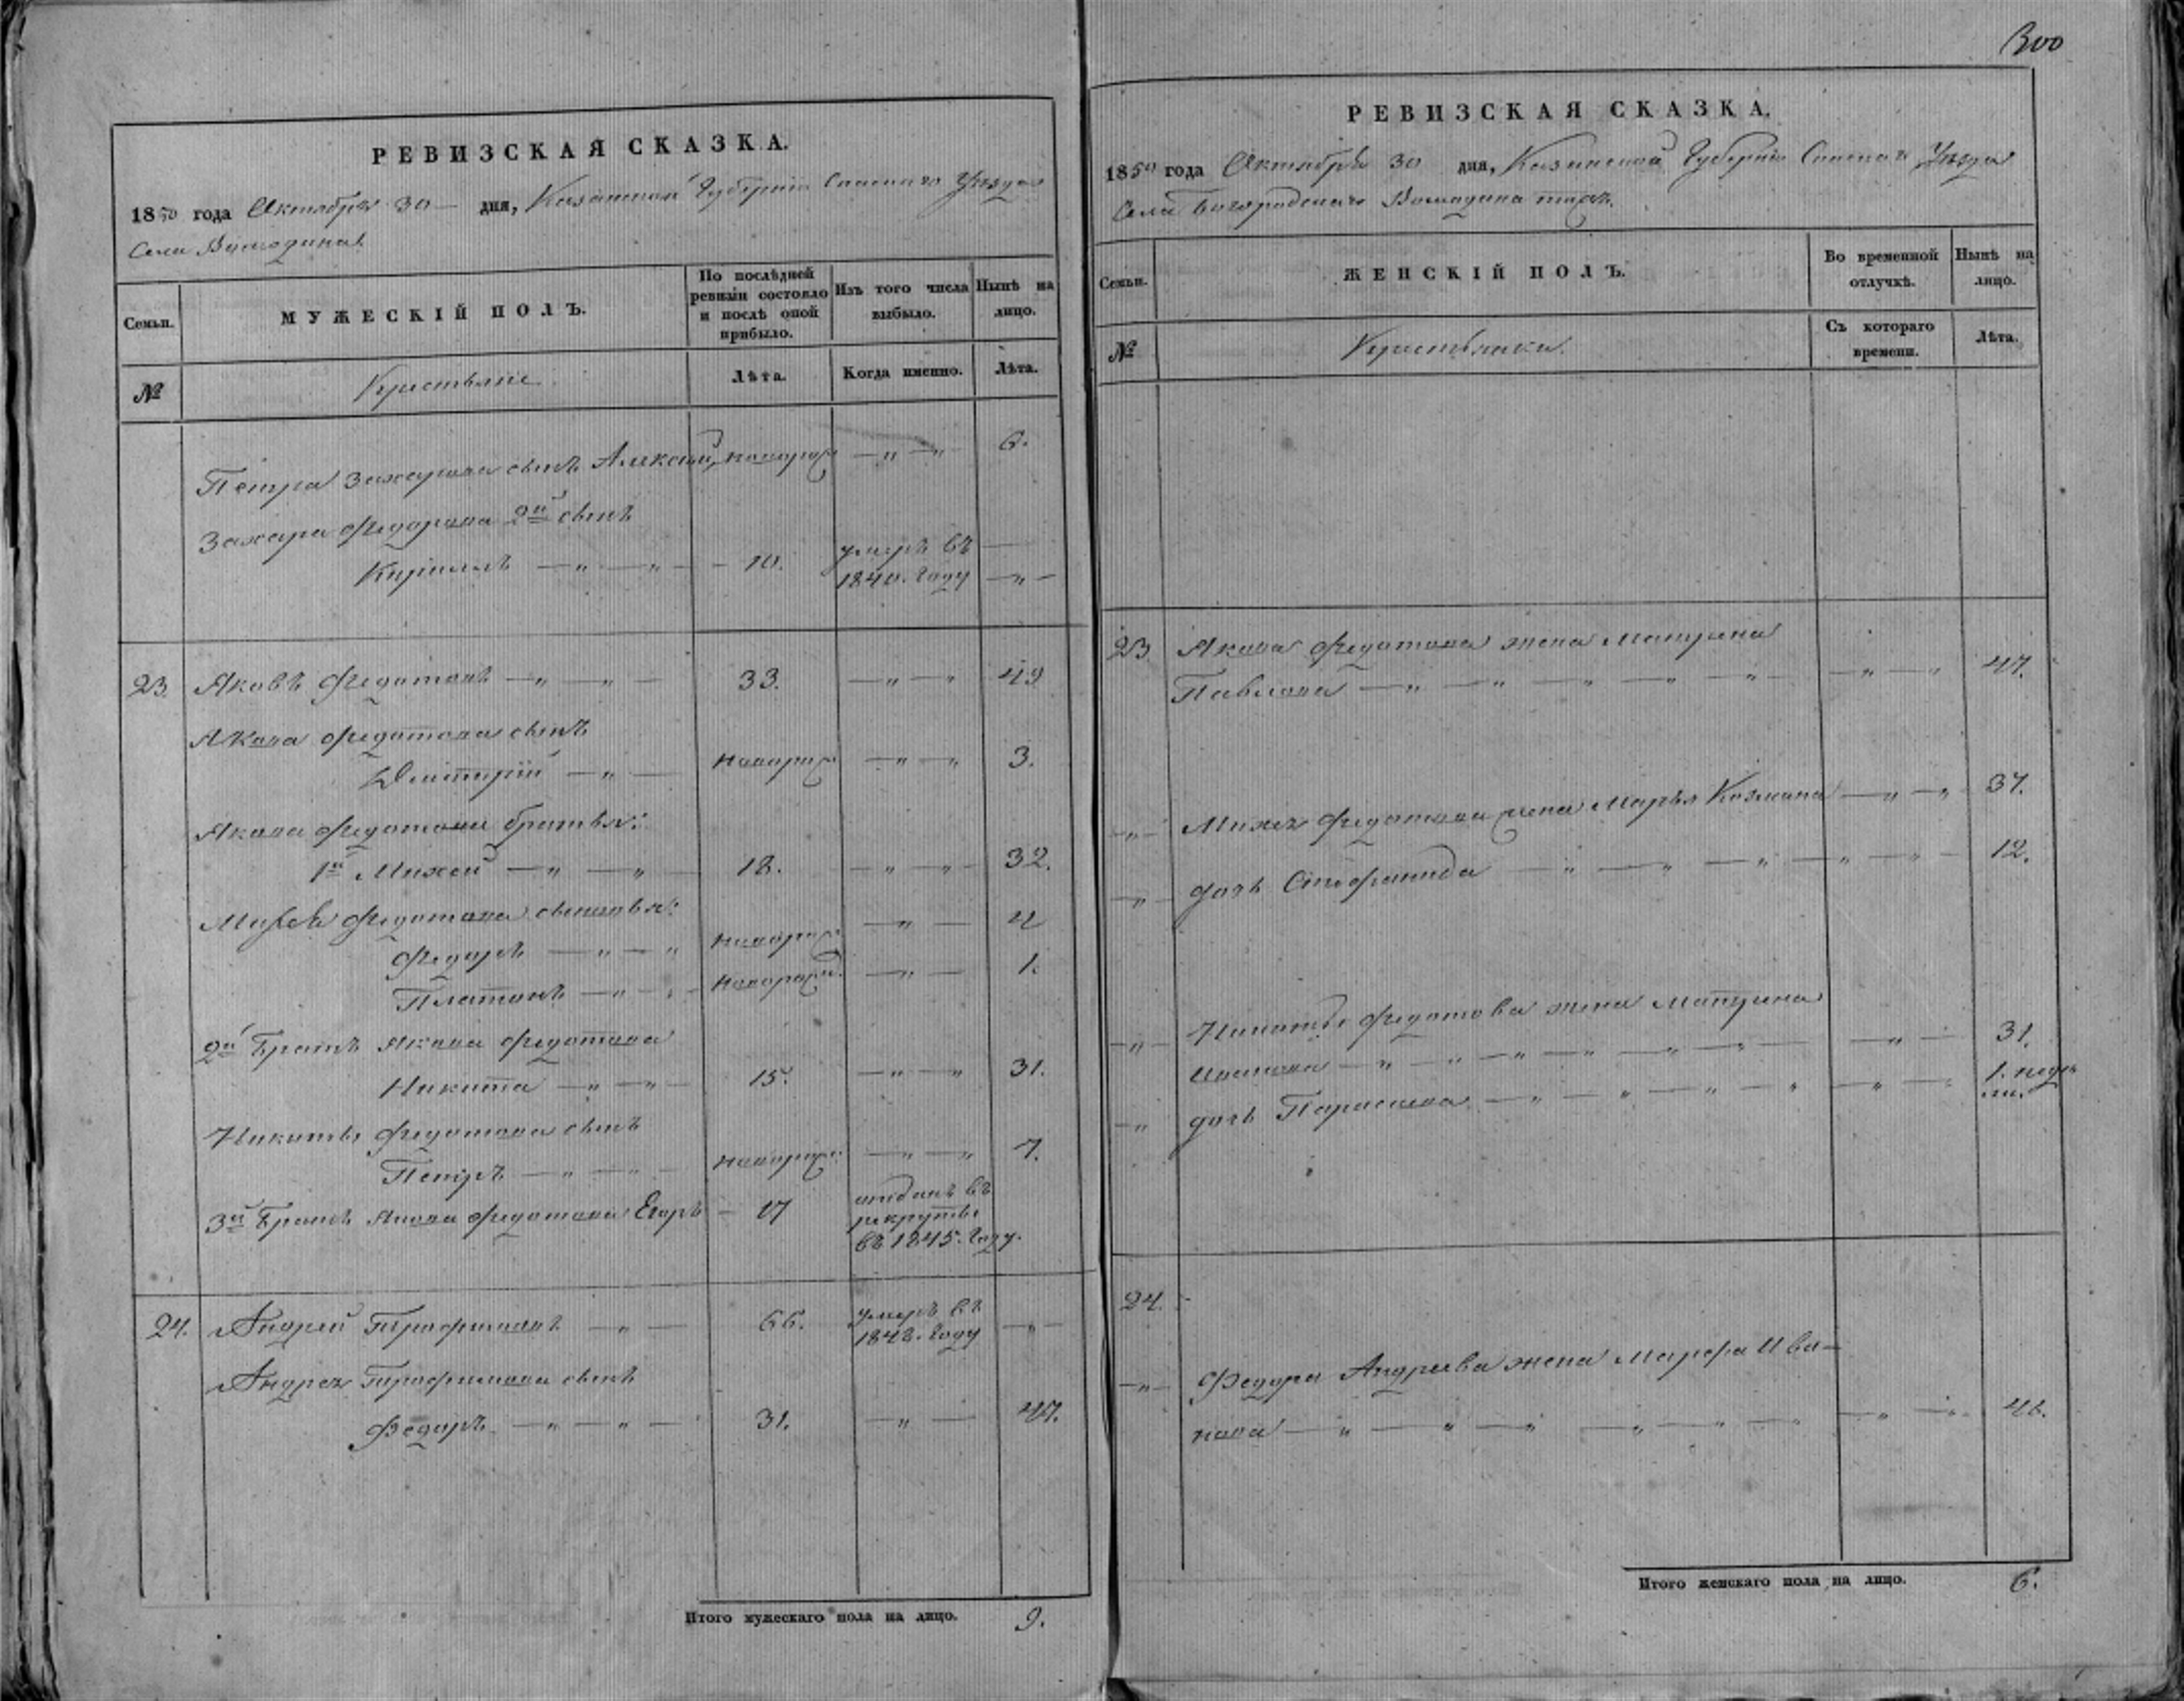 300
РЕВИЗСКАЯ СКАЗКА.
1850 года Октября 30 — дня, Казанской Губернии Спаскаго Уезда
Села
МУЖЕСКІЙ ПОЛЪ.
Семьи.
По послѣдней ревизіи состояло и послѣ оной прибыло.
Изъ того числа выбыло.
Нынѣ на лицо.
№
Крестьяне
Лѣта.
Когда именно.
Лѣта.
Петра Захарова сынъ Алексей новорож — „ — „ 6.
Захара Федорова 2й сынъ
Кирилъ — „ — „ — 10. умеръ въ 1840. году — „ —
23. Яковъ Федотовъ — „ — „ — 33. — „ — „ 49
Якова Федотова сынъ
Дмитрий — „ — новорож — „ — „ 3.
Якова Федотова братья:
1й Михей — „ — „ — 18. — „ — „ — 32.
Михея Федотова сыновья:
Федоръ — „ — „ новорож — „ — 4
Платонъ — „ — новорожд. — „ — 1.
2й братъ Якова Федотова
Никита — „ — „ — 15. — „ — „ 31.
Никиты Федотова сынъ
Петръ — „ — „ — новорож: — „ — „ 7.
3й братъ Якова Федотова Егоръ — 17 отданъ въ рекруты въ 1845. году.
24. Андрей Трофимовъ — „ — 66. умеръ въ 1848. году — „ —
Андрея Трофимова сынъ
Федоръ — „ — „ — 31. — „ — 47.
Итого мужескаго пола на лицо. 9.
РЕВИЗСКАЯ СКАЗКА.
1850 года Октября 30 дня, Казанской Губернии Спаскаго Уезда
Села Богородскаго тожъ.
Семьи.
ЖЕНСКІЙ ПОЛЪ.
Во временной отлучкѣ.
Нынѣ на лицо.
№
Крестьянки.
Съ котораго времени.
Лѣта.
23 Якова Федотова жена Матрена
Павлова — „ — „ — „ — „ — „ — — „ — „ 47.
— „ — Михея Федотова жена Марья Козмина — „ — „ 37.
— „ — дочь Стефанида — „ — „ — „ — „ — „ — 12.
— „ — Никиты Федотова жена Матрена
Иванова — „ — „ — „ — „ — „ — „ — — „ — 31.
— „ дочь Парасковья — „ — „ — „ — „ — „ — 1. недели.
24.
— „ — Федора Андреева жена Марфа Ива-
нова — „ — „ — „ — „ — „ — „ — „ — 46.
Итого женскаго пола на лицо. 6.